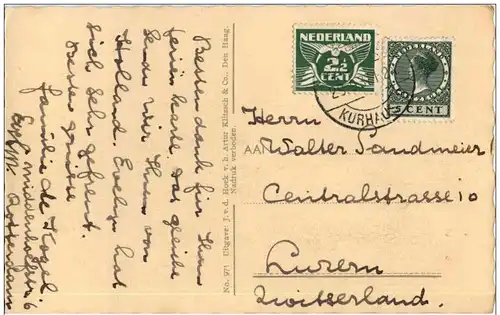 Besten dank für Ihre
ferien karte. das gleiche
senden wir Ihnen von
Holland Evelyn hat
sich sehr gefreut.
Besten grüsse
familie de Kogel
Rotterdam
No. 971 Uitgave: J. v. d. Hoek v. h. Artur Klitzsch & Co., Den Haag
Nadruk verboden
NEDERLAND
2½
CENT
NEDERLAND
5 CENT
KURHAUS
AAN
Herrn
Walter Landmeier
Centralstrasse 10
Luzern
Zwitserland.